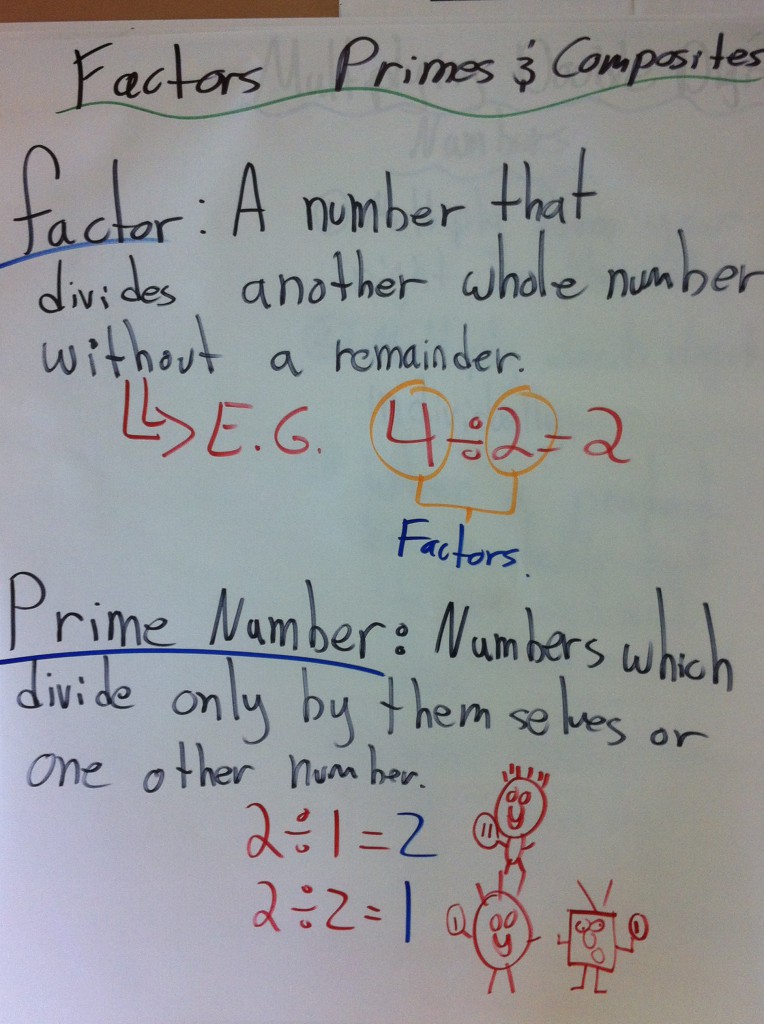 Factors Primes & Composites
factor: A number that
divides another whole number
without a remainder.
E.G. 4÷2=2
Factors.
Prime Number: Numbers which
divide only by themselves or
one other number.
2÷1=2
11
2÷2=1
1
1